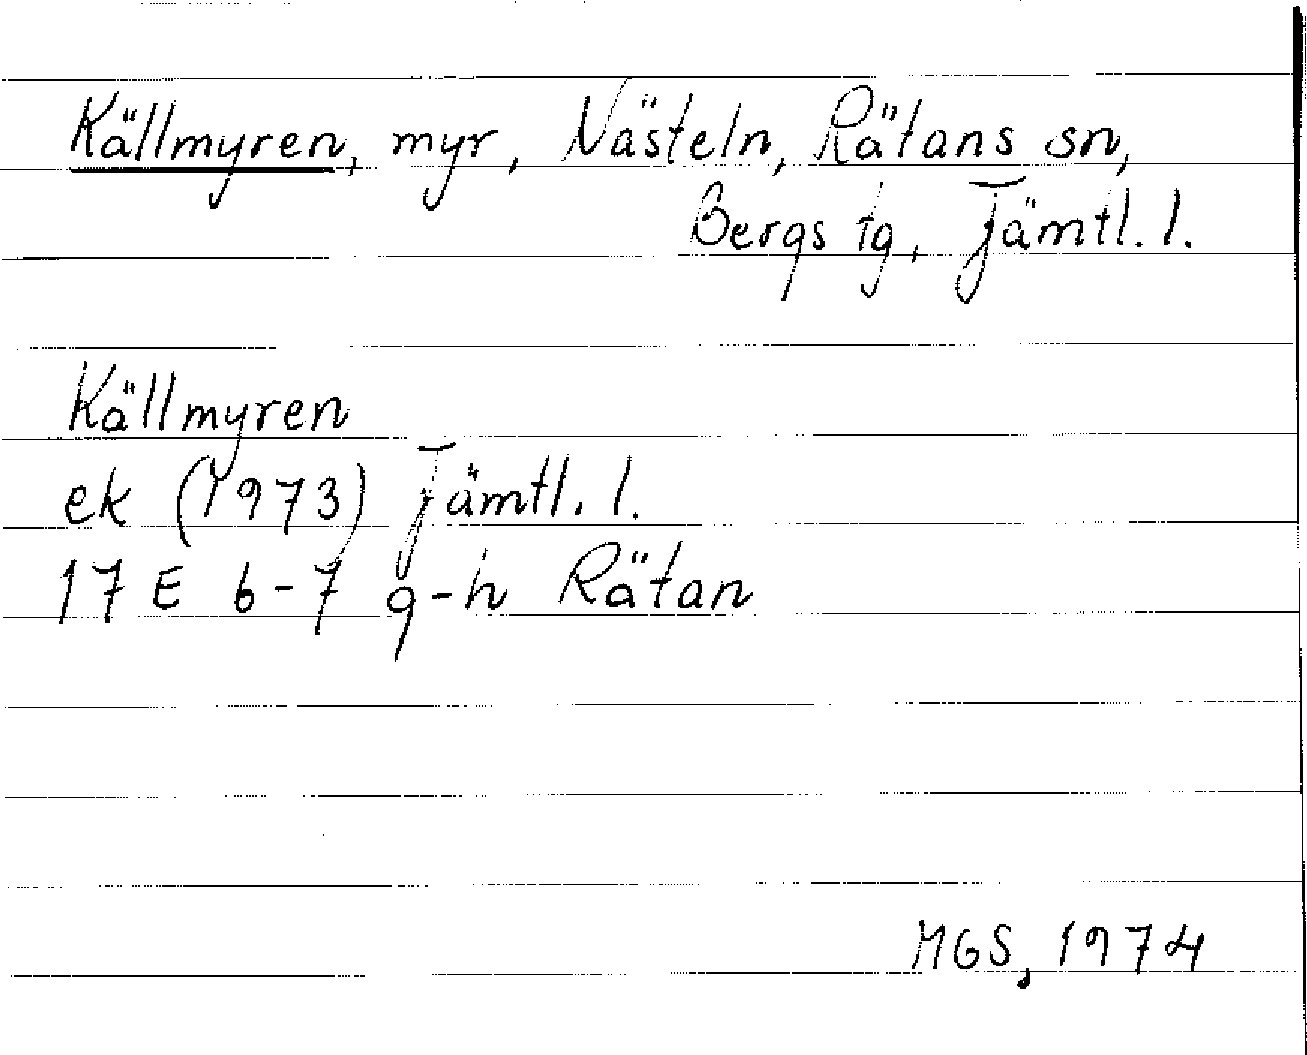 Källmyren, myr, Nästeln, Rätans sn,
Bergs tg, Jämtl. l.
Källmyren
ek (1973) Jämtl. l.
17 E 6-7 g-h Rätan
MGS, 1974